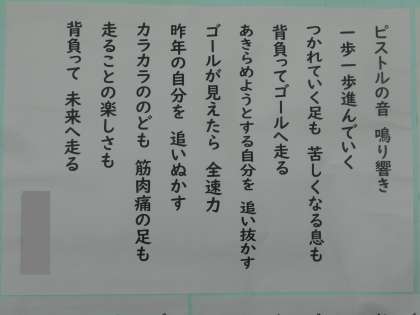 ピストルの音 鳴り響き
一歩一歩進んでいく
つかれていく足も 苦しくなる息も
背負ってゴールへ走る
あきらめようとする自分を 追い抜かす
ゴールが見えたら 全速力
昨年の自分を 追いぬかす
カラカラののども 筋肉痛の足も
走ることの楽しさも
背負って 未来へ走る